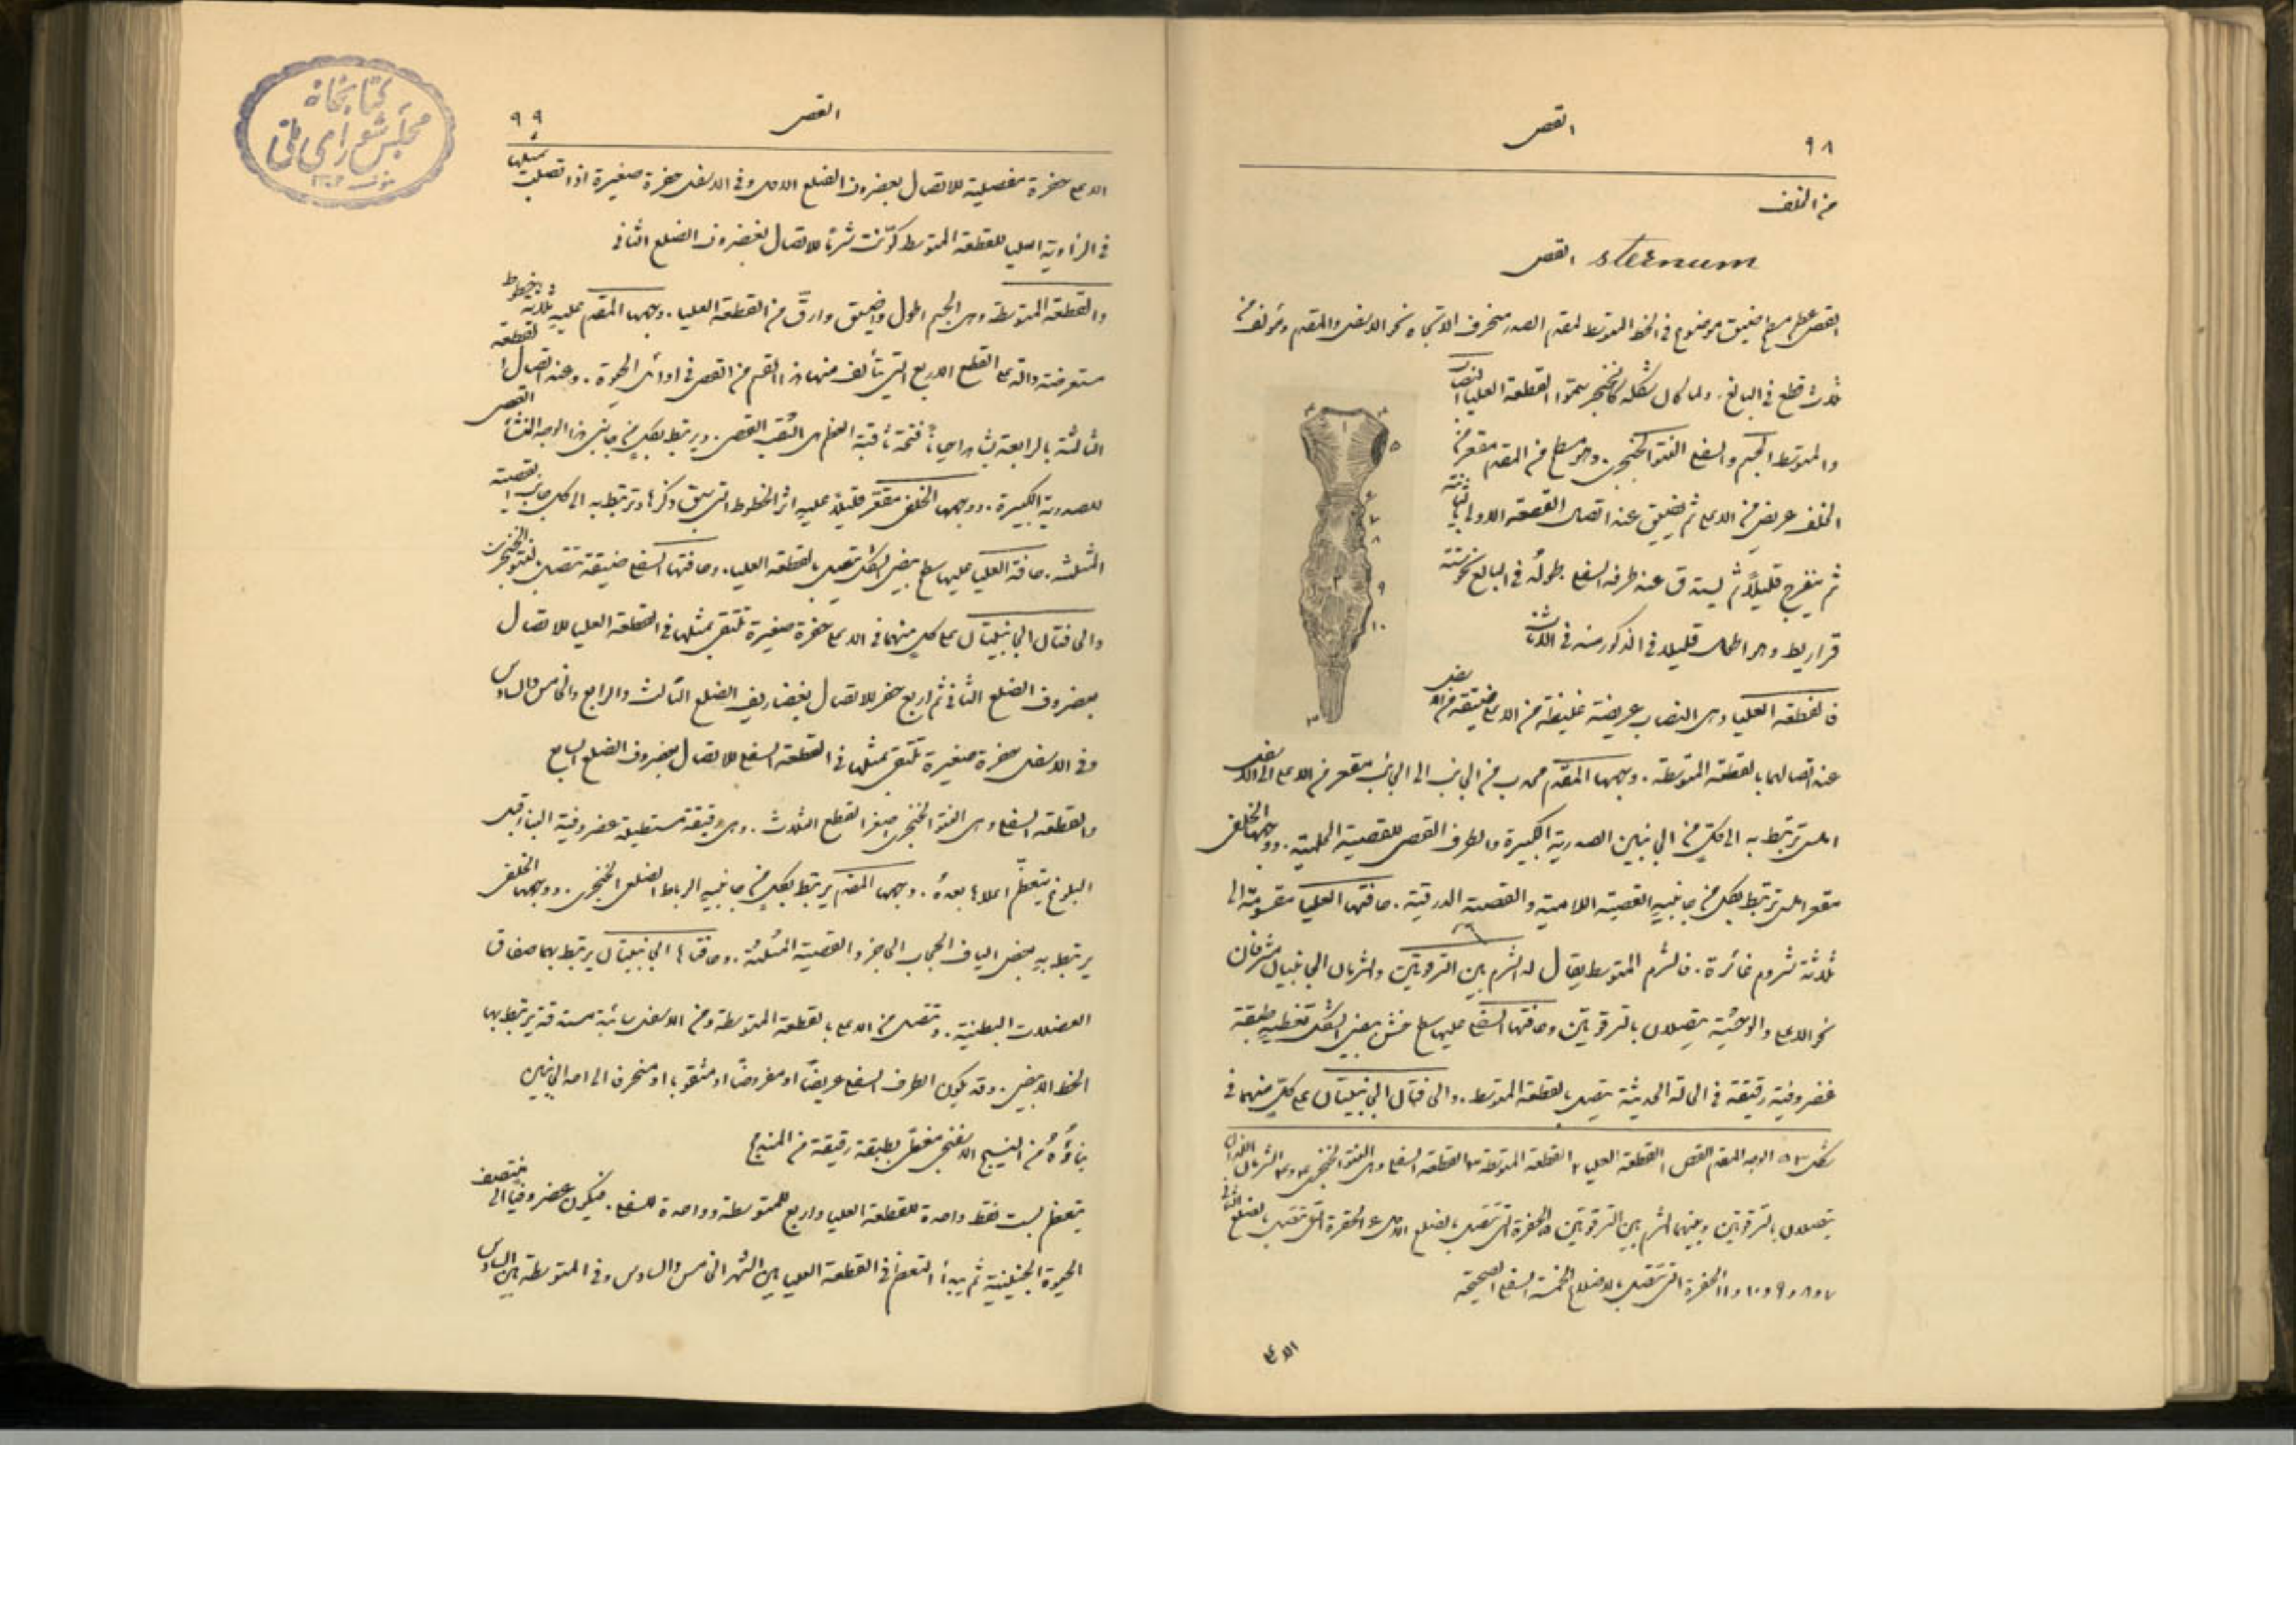 ٩٨
القص
من الخلف
sternum القص
القص عظم مسطح ضيق موضوع في الخط المتوسط لمقدم الصدر منحرف الاتجاه نحو الاسفل والمقدم ومؤلف من
ثلاث قطع في البالغ. ولما كان شكله كالخنجر سمّوا القطعة العليا النصاب
والمتوسطة الجسم والسفلى النتو الخنجري. وهو مسطح من المقدم مقعر من
الخلف عريض من الاعلى ثم يضيق عند اتصال القطعة الاولى بالثانية
ثم ينفرج قليلاً ثم يستدق عند طرفه السفلي. طوله في البالغ نحو ستة
قراريط وهو اطول قليلاً في الذكور منه في الاناث
فالقطعة العليا وهي النصاب عريضة غليظة من الاعلى ضيقة من الاسفل
عند اتصالها بالقطعة المتوسطة. وجهها المقدم محدب من الجانب الى الجانب مقعر من الاعلى الى الاسفل
املس ترتبط به الى كلٍ من الجانبين الصدرية الكبيرة والطرف القصي للقصية الحلمية. ووجهها الخلفي
مقعر املس ترتبط بكل من جانبيه القصية اللامية والقصية الدرقية. حافتها العليا مقسومة الى
ثلاثة شروم غائرة. فالشرم المتوسط يقال له الشرم بين الترقوتين والشرمان الجانبيان مشرفان
نحو الاعلى والوحشية يتصلان بالترقوتين وحافتها السفلى عليها سطح خشن بيضي الشكل تغطيه طبقة
غضروفية رقيقة في الحالة الحديثة يتصل بالقطعة المتوسطة. والحافتان الجانبيتان على كلٍ منهما في
شكل ٥٣ الوجه المقدم للقص ١ القطعة العليا ٢ القطعة المتوسطة ٣ القطعة السفلى وهي النتو الخنجري ٤ و٤ الشرمان اللذان
يتصلان بالترقوتين وبينهما الشرم بين الترقوتين ٥ الحفرة التي تتصل بالضلع الاول ٦ الحفرة التي تتصل بالضلع الثاني
٧ و٨ و٩ و١٠ و١١ الحفرة التي تتصل بالاضلاع الخمسة السفلى الصحيحة
الاعلى
القص
٩٩
الاعلى حفرة مفصلية للاتصال بغضروف الضلع الاول وفي الاسفل حفرة صغيرة اذا اتصلت بمثلها
في الزاوية العليا للقطعة المتوسط كوّنت شرمًا للاتصال بغضروف الضلع الثاني
والقطعة المتوسطة وهي الجسم اطول واضيق وارقّ من القطعة العليا. وجهها المقدم عليه ثلاثة خطوط
مستعرضة دالة على القطع الاربع التي تتألف منها هذا القسم من القص في اوائل الحيوة. وعند اتصال القطعة
الثالثة بالرابعة يشاهد احيانًا فتحة ثاقبة العظم هي الثقب القصي. ويرتبط بكلٍ من جانبي هذا الوجه المنشأ القصي
للصدرية الكبيرة. ووجهها الخلفي مقعر قليلاً عليه اثر الخطوط التي سبق ذكرها وترتبط به الى كل جانب القصية
المثلثة. حافته العليا عليها سطح بيضي الشكل يتصل بالقطعة العليا. وحافتها السفلى ضيقة تتصل بالنتو الخنجري
والحافتان الجانبيتان على كلٍ منهما في الاعلى حفرة صغيرة تلتقي بمثلها في القطعة العليا للاتصال
بغضروف الضلع الثاني ثم اربع حفر للاتصال بغضاريف الضلع الثالث والرابع والخامس والسادس
وفي الاسفل حفرة صغيرة تلتقي بمثلها في القطعة السفلى للاتصال بغضروف الضلع السابع
والقطعة السفلى وهي النتو الخنجري اصغر القطع الثلاث. وهي رقيقة مستطيلة غضروفية البناء قبل
البلوغ يتعظم اعلاها بعده. وجهها المقدم يرتبط بكلٍ من جانبيه الرباط الضلعي الخنجري. ووجهها الخلفي
يرتبط به بعض الياف الحجاب الحاجز والقصية المثلثة. وحافتاها الجانبيتان يرتبط بهما صفاق
العضلات البطنية. وتتصل من الاعلى بالقطعة المتوسطة ومن الاسفل سائبة مستدقة يرتبط بها
الخط الابيض. وقد يكون الطرف السفلي عريضًا او مفروضًا او مثقوبا او منحرفًا الى احد الجانبين
بناؤه من النسيج الاسفنجي مغطى بطبقة رقيقة من المندمج
يتعظم بست نقط واحدة للقطعة العليا واربع للمتوسطة وواحدة للسفلى. فيكون غضروفيًا الى منتصف
الحيوة الجنينية ثم يبدأ التعظم في القطعة العليا بين الشهر الخامس والسادس وفي المتوسطة بين السادس
كتابخانهٔ
مجلس شورای ملی